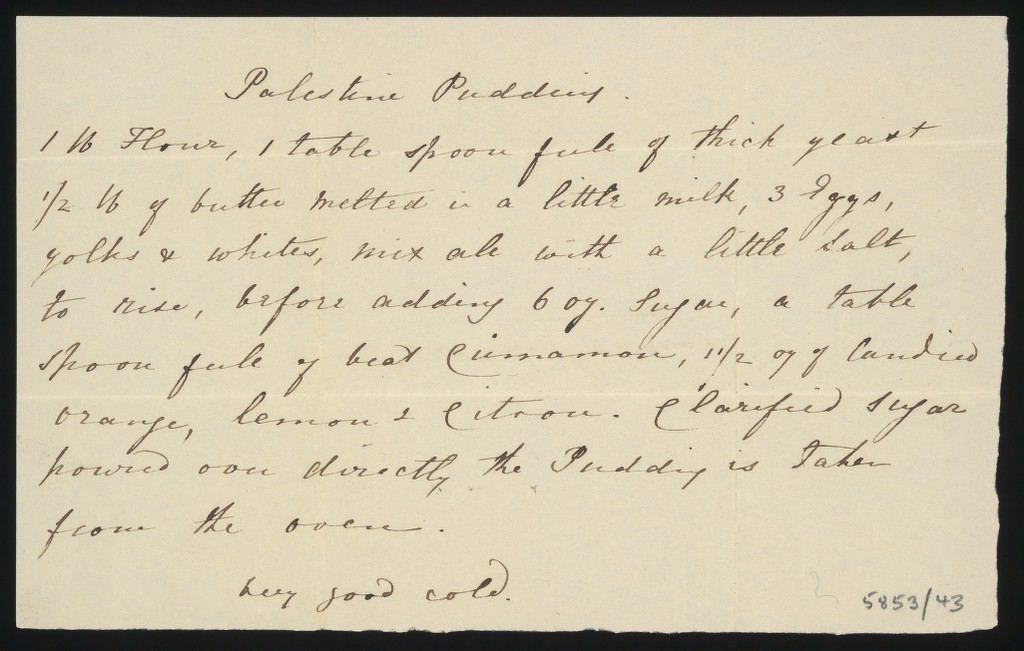 Palestine Pudding.
1 lb Flour, 1 table spoon full of thick yeast
1/2 lb of butter melted in a little milk, 3 Eggs,
yolks & whites, mix all with a little salt,
to rise, before adding 6 oz. Sugar, a table
spoon full of beat Cinnamon, 1 1/2 oz of Candied
orange, lemon & Citron. Clarified sugar
poured over directly the Pudding is taken
from the oven.
very good cold.
5853/43